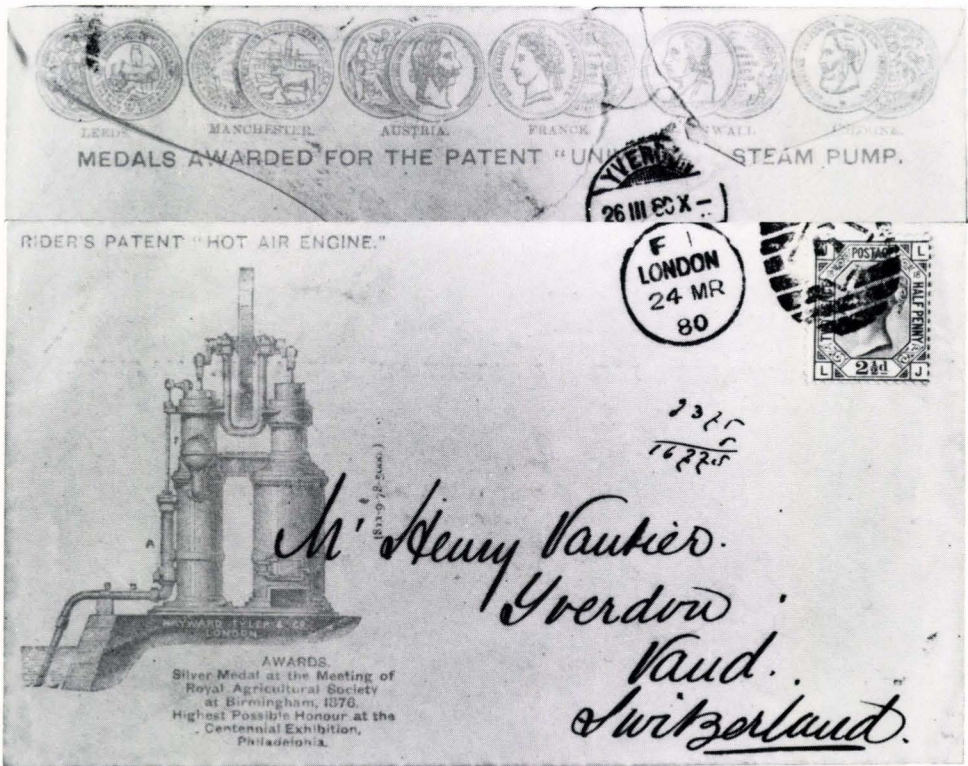 LEEDS. MANCHESTER. AUSTRIA. FRANCE. COLOGNE.
MEDALS AWARDED FOR THE PATENT "UNI STEAM PUMP.
YVERDON
26 III 80 X –
RIDER'S PATENT "HOT AIR ENGINE."
F 1
LONDON
24 MR
80
POSTAGE
HALF PENNY
L
2½d
L J
Mr Henry Vautier.
Yverdon
Vaud.
Switzerland.
A
HAYWARD TYLER & CO.
LONDON.
AWARDS.
Silver Medal at the Meeting of
Royal Agricultural Society
at Birmingham, 1876.
Highest Possible Honour at the
Centennial Exhibition,
Philadelphia.